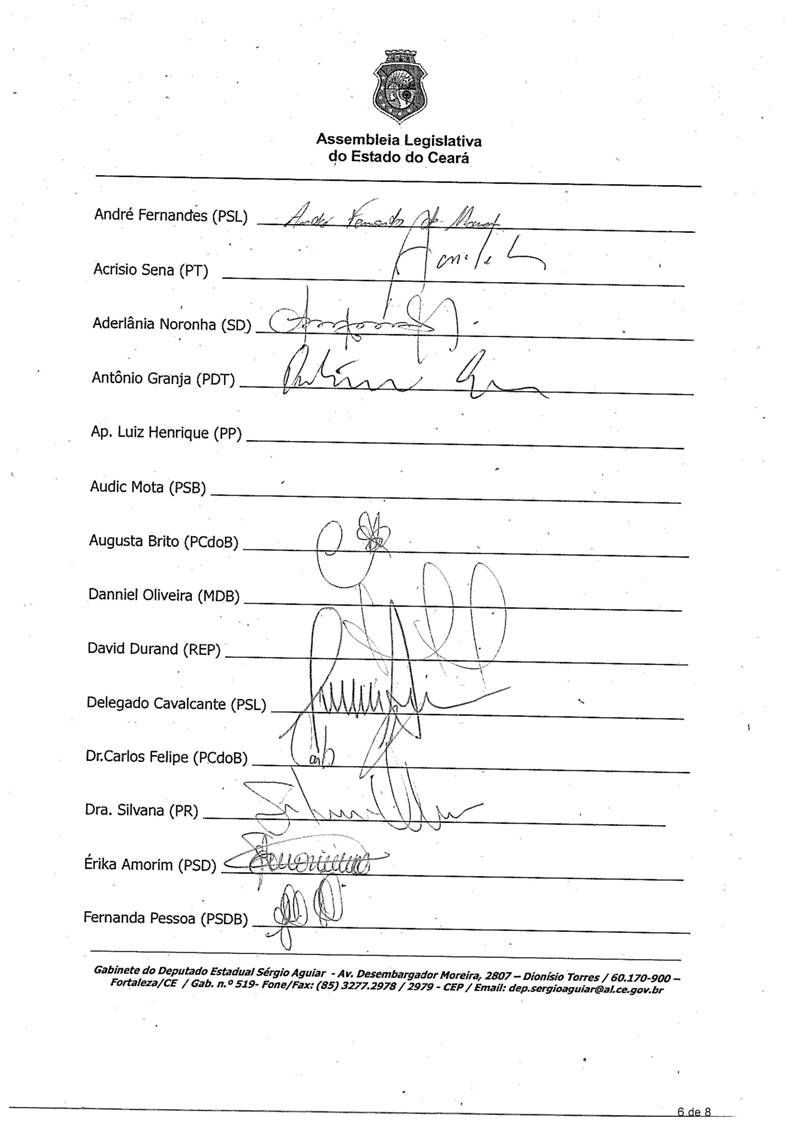 Assembleia Legislativa
do Estado do Ceará
André Fernandes (PSL) André Fernandes de Moura
Acrisio Sena (PT)
Aderlânia Noronha (SD)
Antônio Granja (PDT)
Ap. Luiz Henrique (PP)
Audic Mota (PSB)
Augusta Brito (PCdoB)
Danniel Oliveira (MDB)
David Durand (REP)
Delegado Cavalcante (PSL)
Dr.Carlos Felipe (PCdoB)
Dra. Silvana (PR)
Érika Amorim (PSD)
Fernanda Pessoa (PSDB)
Gabinete do Deputado Estadual Sérgio Aguiar - Av. Desembargador Moreira, 2807 – Dionísio Torres / 60.170-900 –
Fortaleza/CE / Gab. n.º 519- Fone/Fax: (85) 3277.2978 / 2979 - CEP / Email: dep.sergioaguiar@al.ce.gov.br
6 de 8